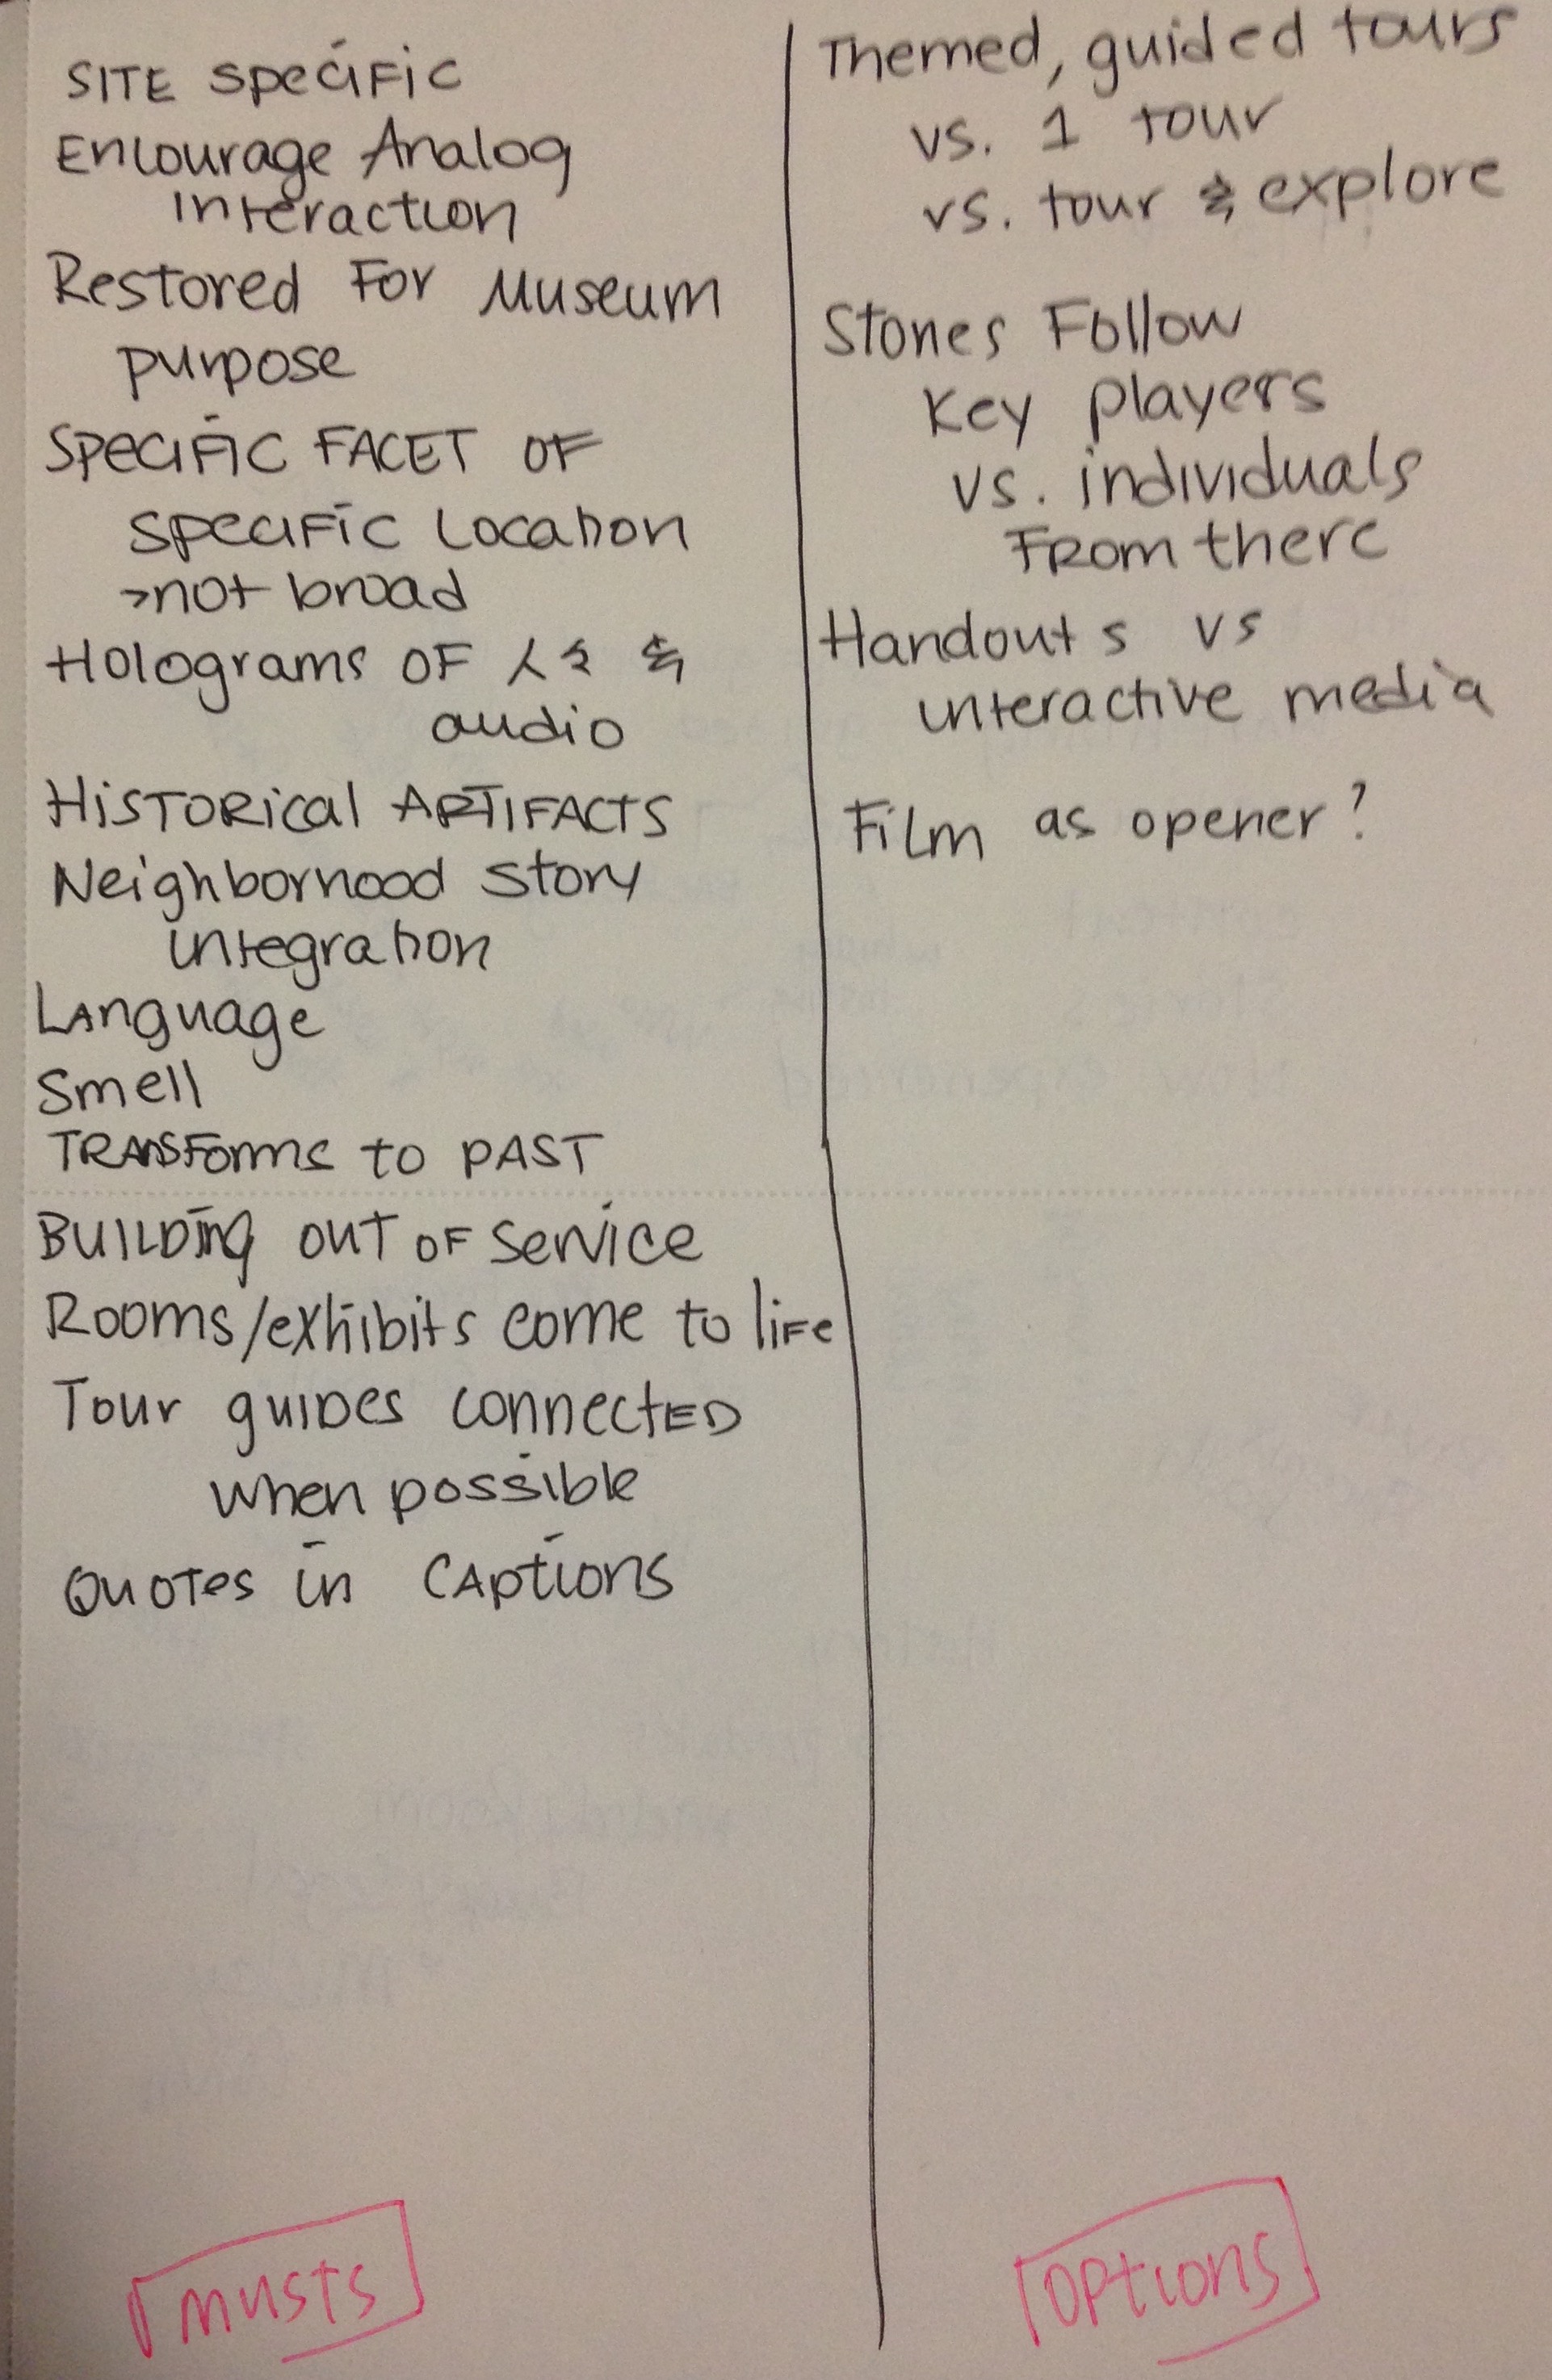 SITE specific
Encourage Analog
Interaction
Restored For Museum
purpose
SPECIFIC FACET OF
specific Location
>not broad
Holograms OF 人s &
audio
HISTORICAL ARTIFACTS
Neighborhood Story
integration
Language
Smell
TRANSFORMS to PAST
BUILDING OUT OF Service
Rooms/exhibits come to life
Tour guides connected
when possible
Quotes in Captions
MUSTS
Themed, guided tours
vs. 1 tour
vs. tour & explore
Stories Follow
Key players
vs. individuals
From there
Handouts vs
interactive media
Film as opener?
OPTIONS